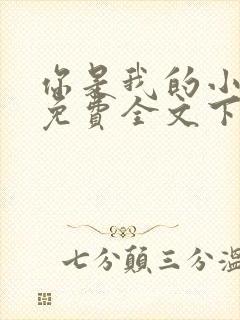 你是我的小
免費全文下
七分顛三分溫